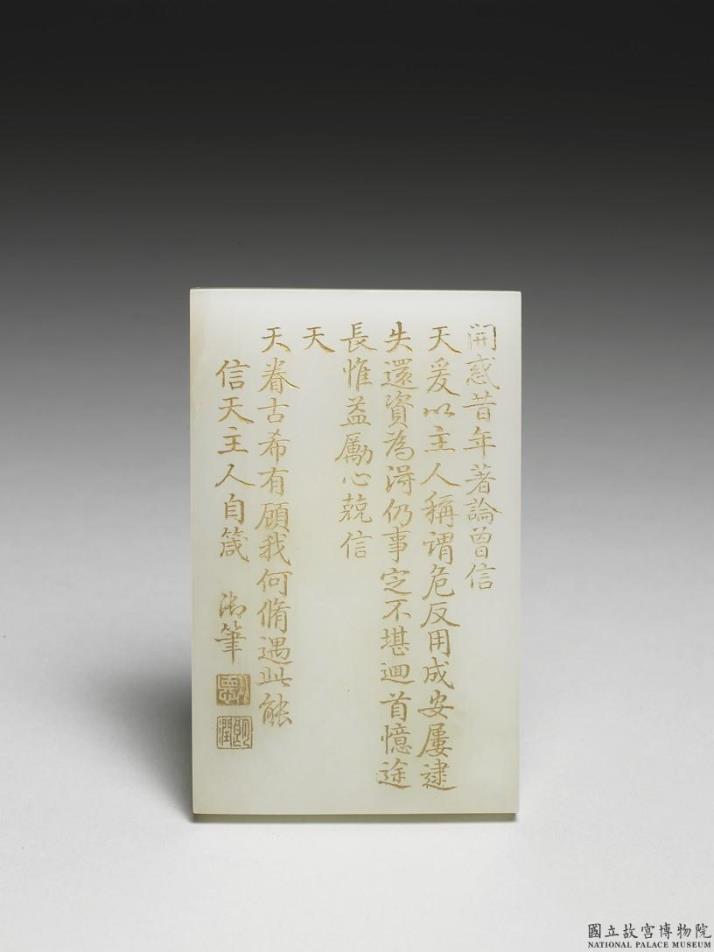 開惑昔年著論曾信
天爰以主人稱謂危反用成安屢逮
失還資為淂仍事定不堪迴首憶途
長惟益勵心兢信
天
天眷古希有顧我何脩遇此能
信天主人自箴 御筆
國立故宮博物院
NATIONAL PALACE MUSEUM